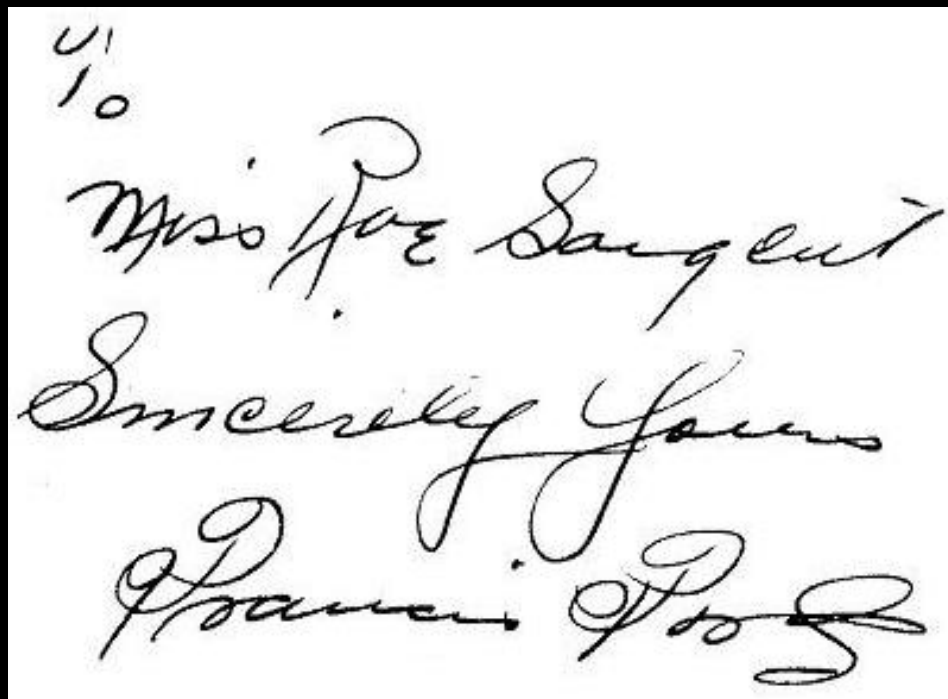 To
Miss Rose Sargent
Sincerely Yours
Francis